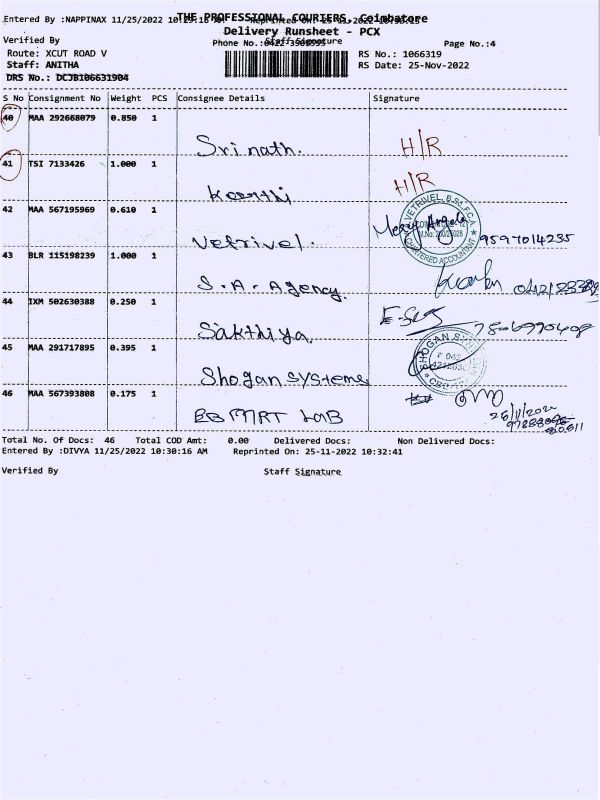 Entered By :NAPPINAX 11/25/2022 THE PROFESSIONAL COURIERS, Coimbatore
Delivery Runsheet - PCX
Verified By Staff Signature
Phone No.:0422 Page No.:4
Route: XCUT ROAD V RS No.: 1066319
Staff: ANITHA RS Date: 25-Nov-2022
DRS No.: DCJB106631904
S No Consignment No Weight PCS Consignee Details Signature
40 MAA 292668079 0.850 1
Srinath. H/R
41 TSI 7133426 1.000 1
Keerthi H/R
42 MAA 567195969 0.610 1
Vetrivel. 9597014235
VETRIVEL, B.Sc.,F.C.A. CHARTERED ACCOUNTANT
43 BLR 115198239 1.000 1
S.A. Agency.
44 IXM 502630388 0.250 1
Sakthiya.
45 MAA 291717895 0.395 1
Shogan systems
SHOGAN
46 MAA 567393808 0.175 1
Total No. Of Docs: 46 Total COD Amt: 0.00 Delivered Docs: Non Delivered Docs:
Entered By :DIVYA 11/25/2022 10:30:16 AM Reprinted On: 25-11-2022 10:32:41
Verified By Staff Signature